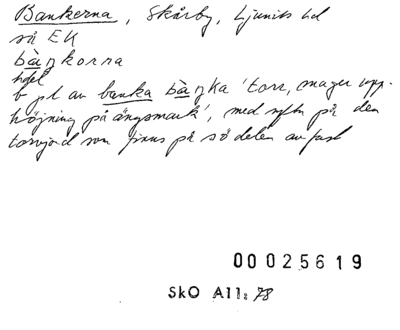 Bankerna, Skårby, Ljunits hd
så EK
bàŋkorna
hdel
b pl av banka bàŋka 'torr, mager upp-
höjning på ängsmark', med syftn på den
torvjord som finns på sö delen av fast
00025619
SkO All: 78